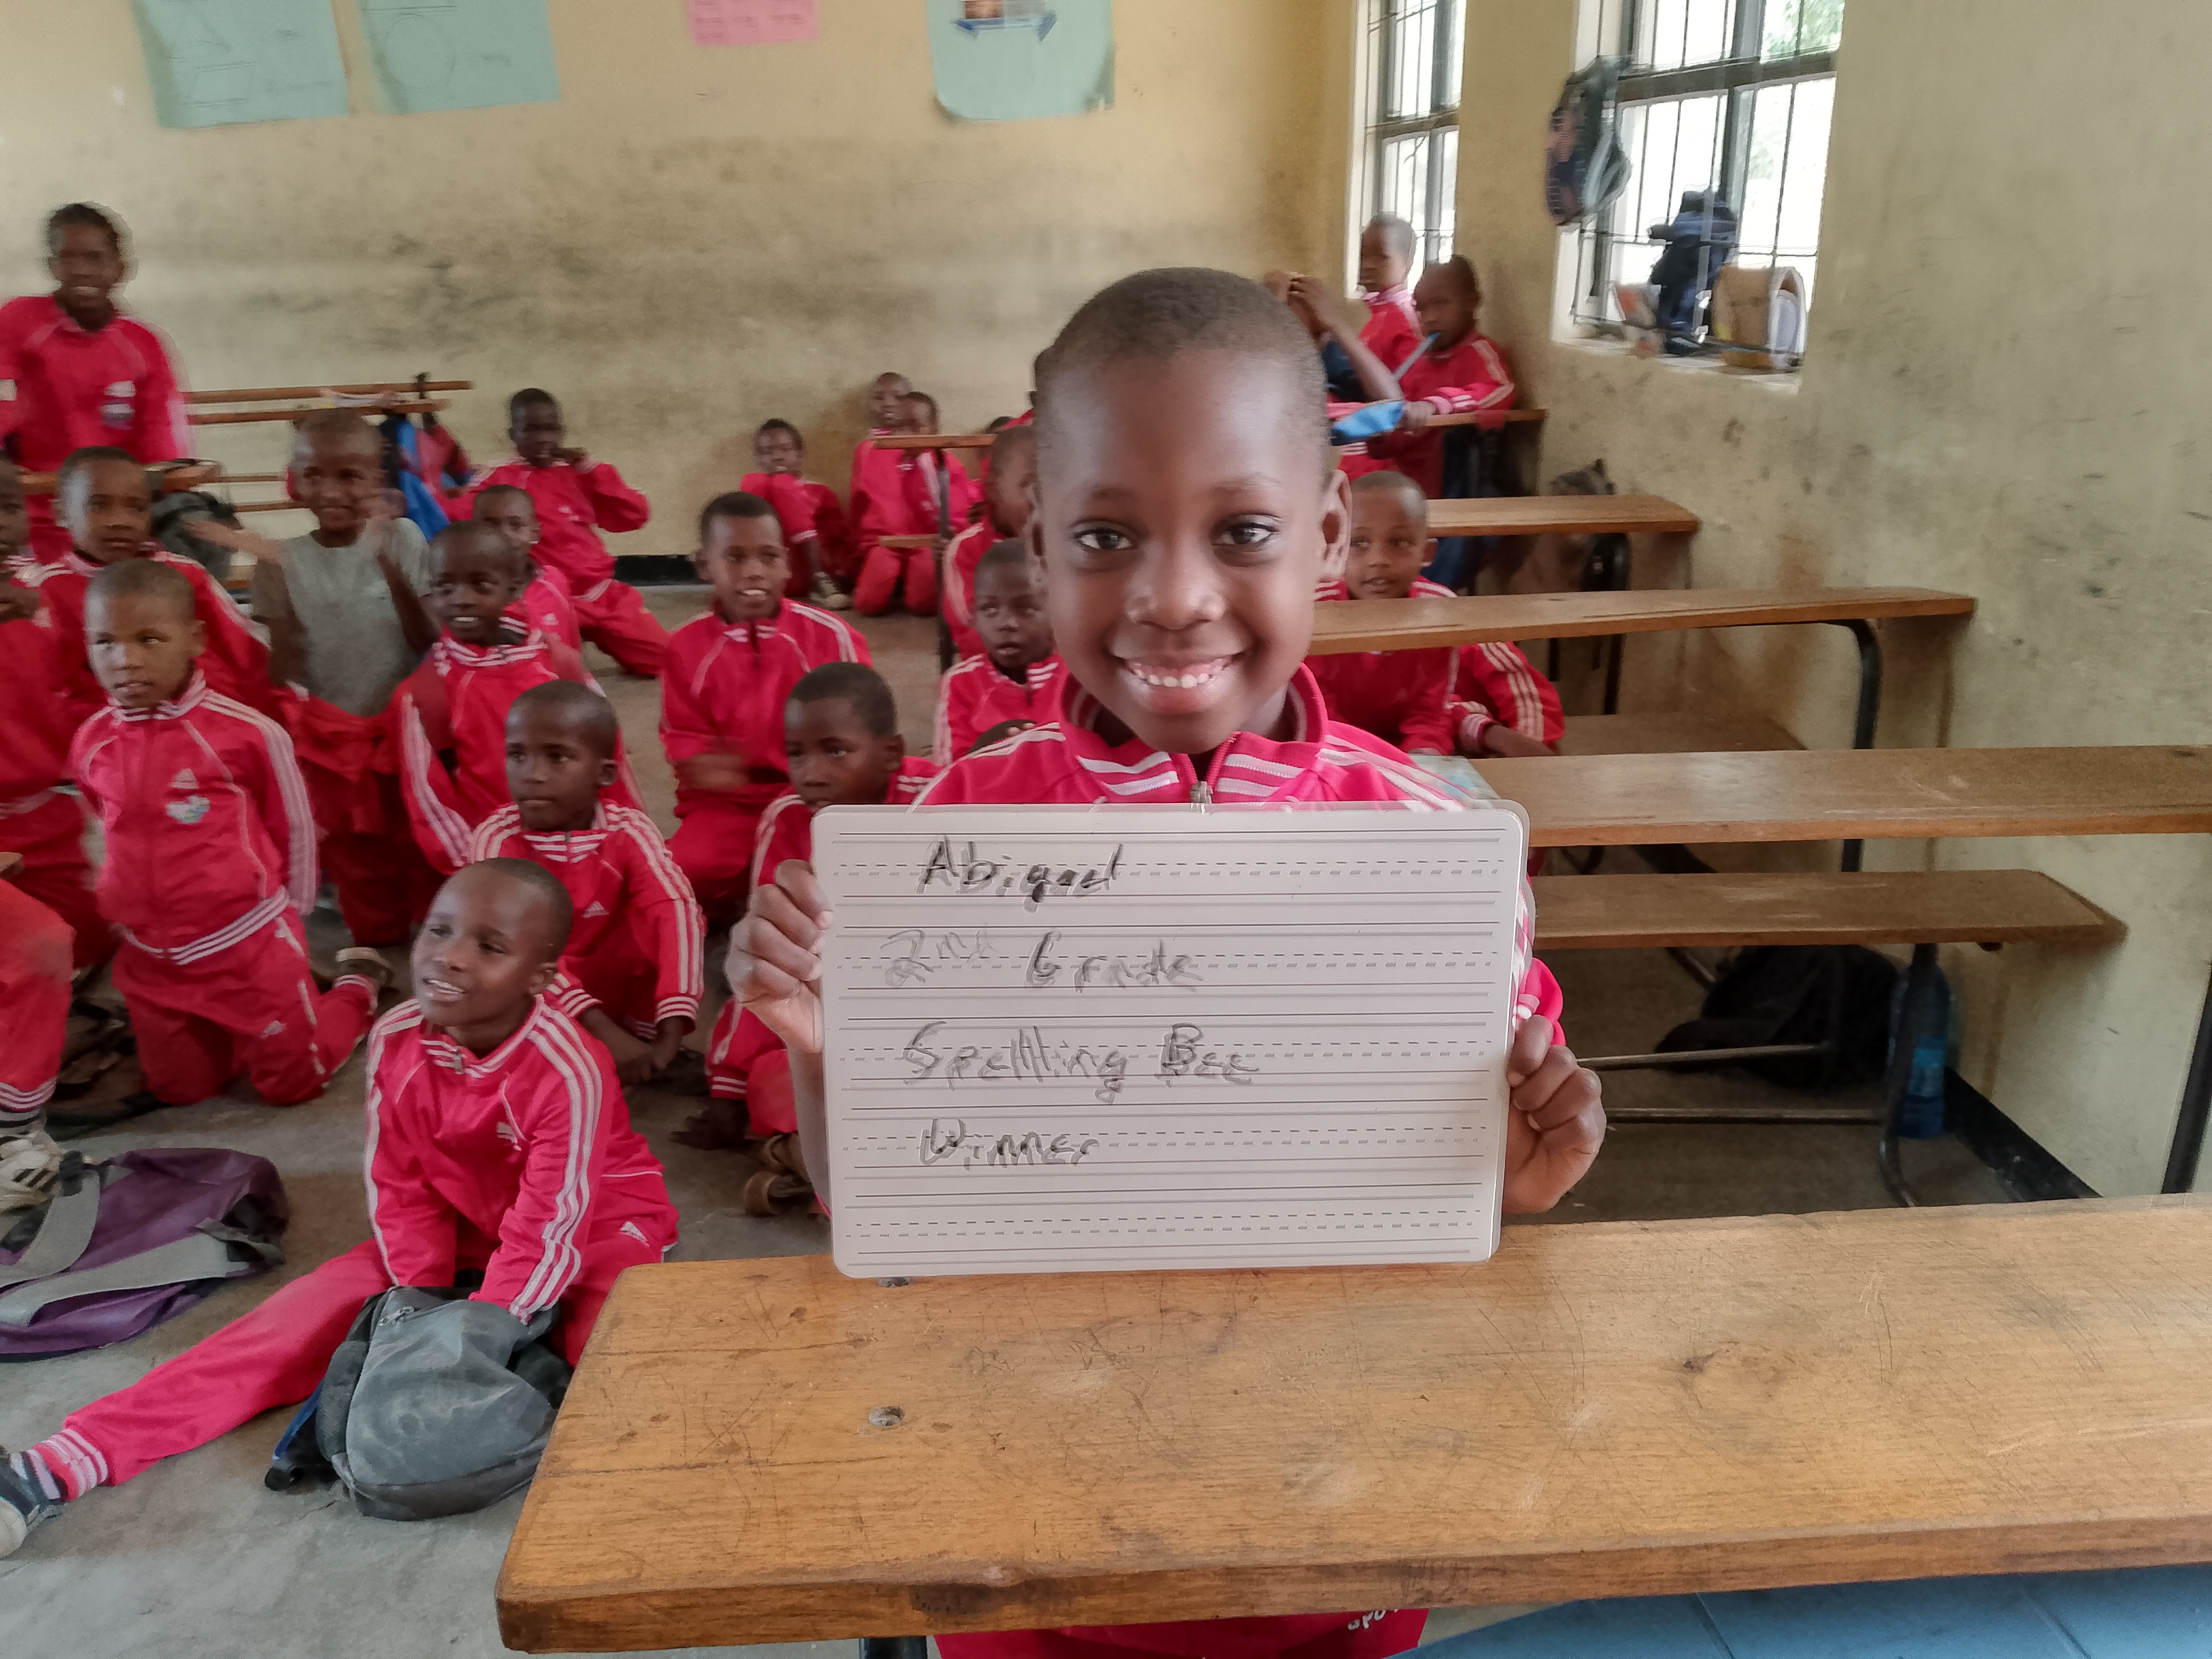 Abigael
2nd Grade
Spellling Bee
Winner